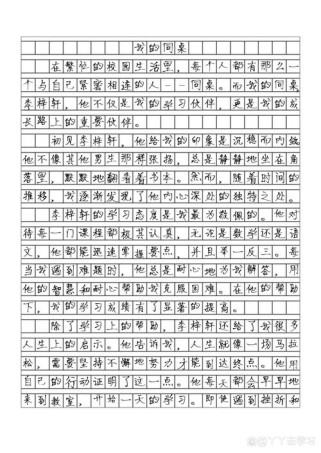 我的同桌
在繁忙的校园生活里，每个人都有那么一
个与自己紧密相连的人——同桌。而我的同桌
李梓轩，他不仅是我的学习伙伴，更是我的成
长路上的重要伙伴。
初见李梓轩，他给我的印象是沉稳而内敛
他不像其他男生那样张扬，总是静静地坐在角
落里，默默地翻看着书本。然而，随着时间的
推移，我逐渐发现了他内心深处的独特之处。
李梓轩的学习态度是我最为敬佩的。他对
待每一门课程都极其认真，无论是数学还是语
文，他都能迅速掌握要点，并且举一反三。每
当我遇到难题时，他总是耐心地为我解答，用
他的智慧和耐心帮助我克服困难。在他的帮助
下，我的学习成绩有了显著的提高。
除了学习上的帮助，李梓轩还给了我很多
人生上的启示。他告诉我，人生就像一场马拉
松，需要坚持不懈地努力才能到达终点。他用
自己的行动证明了这一点。他每天都会早早地
来到教室，开始一天的学习。即使遇到挫折和
@丫丫去学习